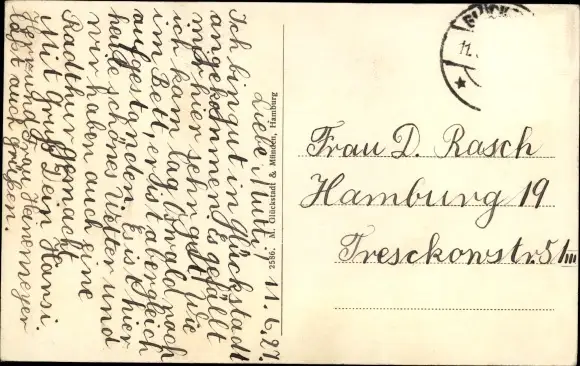 Liebe Mutti! 11.6.27.
Ich bin gut in Glückstadt
angekommen. Es gefällt
mir hier sehr gut. Wie
ich kam lag Oswald noch
im Bett, er ist aber gleich
aufgestanden. Es is hier
heute schönes Wetter und
wir haben auch eine
Radthur gemacht
Mit Gruß Dein Hansi.
Herr und Frau Hansmeyer
läßt auch grüßen.
2586. M. Glückstadt & Münden, Hamburg
GLÜCKS
11.
Frau D. Rasch
Hamburg 19
Tresckowstr. 51 III